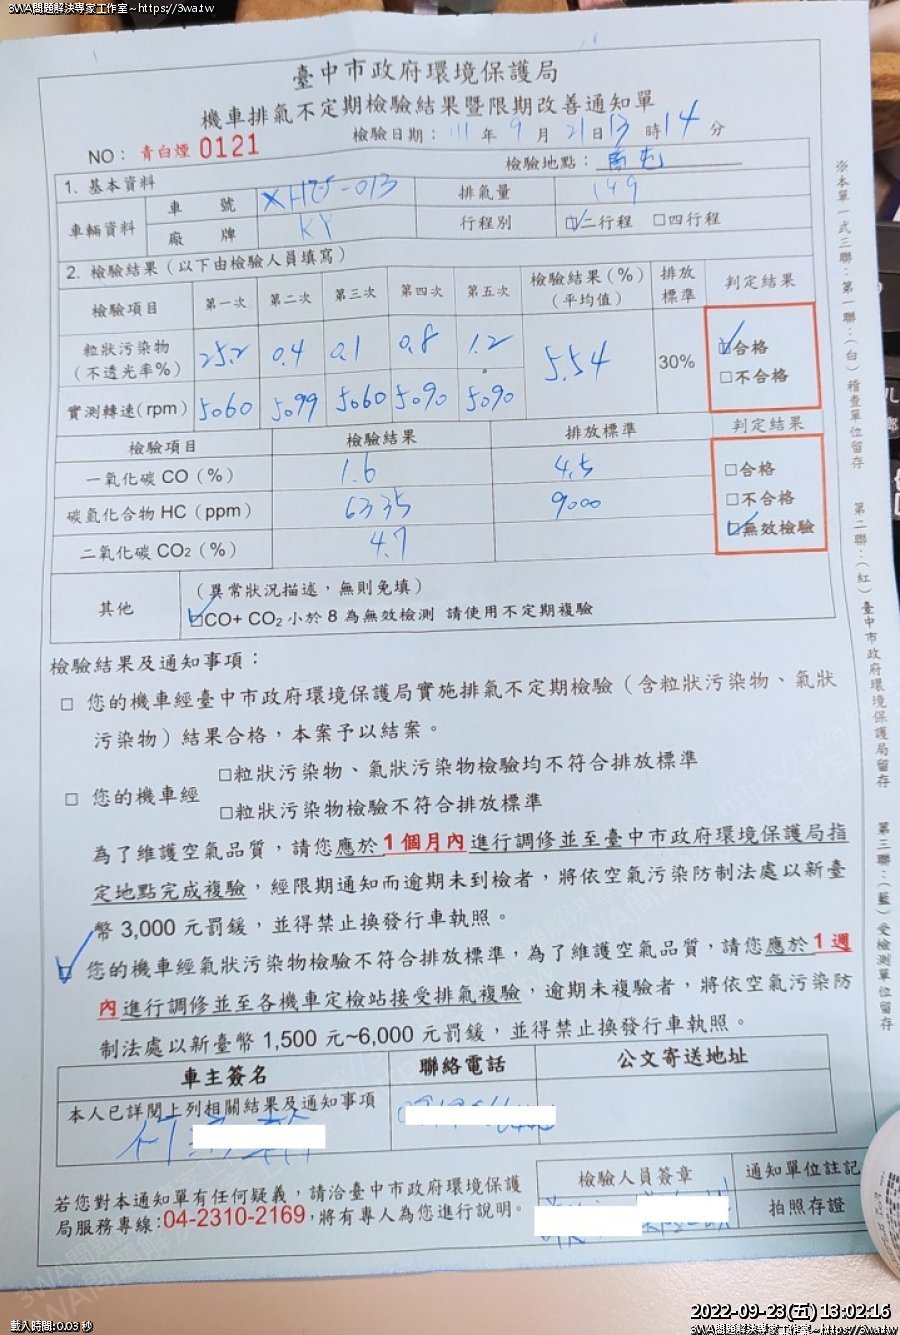 3WA問題解決專家工作室~https://3wa.tw
臺中市政府環境保護局
機車排氣不定期檢驗結果暨限期改善通知單
檢驗日期： 111 年 9 月 21日13 時14 分
NO： 青白煙 0121
檢驗地點： 南屯
1. 基本資料
車輛資料 車 號 排氣量 149
廠 牌 KY 行程別 ☑二行程 □四行程
2. 檢驗結果（以下由檢驗人員填寫）
檢驗項目 第一次 第二次 第三次 第四次 第五次 檢驗結果(%)（平均值） 排放標準 判定結果
粒狀污染物（不透光率%） 25.2 0.4 0.1 0.8 1.2 5.54 30% ☑合格 □不合格
實測轉速(rpm) 5060 5099 5060 5090 5090
檢驗項目 檢驗結果 排放標準 判定結果
一氧化碳 CO（%） 1.6 4.5 □合格
碳氫化合物 HC（ppm） 6335 9000 □不合格
二氧化碳 CO2（%） 4.7 ☑無效檢驗
其他 （異常狀況描述，無則免填）
☑CO+ CO2 小於 8 為無效檢測 請使用不定期複驗
檢驗結果及通知事項：
□ 您的機車經臺中市政府環境保護局實施排氣不定期檢驗（含粒狀污染物、氣狀
污染物）結果合格，本案予以結案。
□ 您的機車經 □粒狀污染物、氣狀污染物檢驗均不符合排放標準
□粒狀污染物檢驗不符合排放標準
為了維護空氣品質，請您應於1個月內進行調修並至臺中市政府環境保護局指
定地點完成複驗，經限期通知而逾期未到檢者，將依空氣污染防制法處以新臺
幣 3,000 元罰鍰，並得禁止換發行車執照。
☑ 您的機車經氣狀污染物檢驗不符合排放標準，為了維護空氣品質，請您應於1週
內進行調修並至各機車定檢站接受排氣複驗，逾期未複驗者，將依空氣污染防
制法處以新臺幣 1,500 元~6,000 元罰鍰，並得禁止換發行車執照。
車主簽名 聯絡電話 公文寄送地址
本人已詳閱上列相關結果及通知事項
檢驗人員簽章 通知單位註記
拍照存證
若您對本通知單有任何疑義，請洽臺中市政府環境保護
局服務專線:04-2310-2169，將有專人為您進行說明。
※本單一式三聯：第一聯：（白）稽查單位留存 第二聯：（紅）臺中市政府環境保護局留存 第三聯：（藍）受檢測單位留存
2022-09-23(五) 13:02:16
載入時間:0.03 秒
3WA問題解決專家工作室~https://3wa.tw